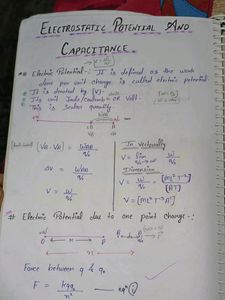 ELECTROSTATIC POTENTIAL AND
CAPACITANCE
Electric Potential -: It is defined as the work
done per unit charge is called electric potential.
It is denoted by [V].
Its unit Joule/Coulomb = OR Volt.
This is Scalar quantity.
(VB - VA) = WAB/q0
ΔV = WAB/q0
V = W/q0
In vectorially
V = lim q0→0 W/q0
Dimension
V = W/q = [ML²T⁻²]/[AT]
V = [ML²T⁻³A⁻¹]
Electric Potential due to one point charge -:
Force between q & q0
F = kqq0/x² — eqⁿ (i)